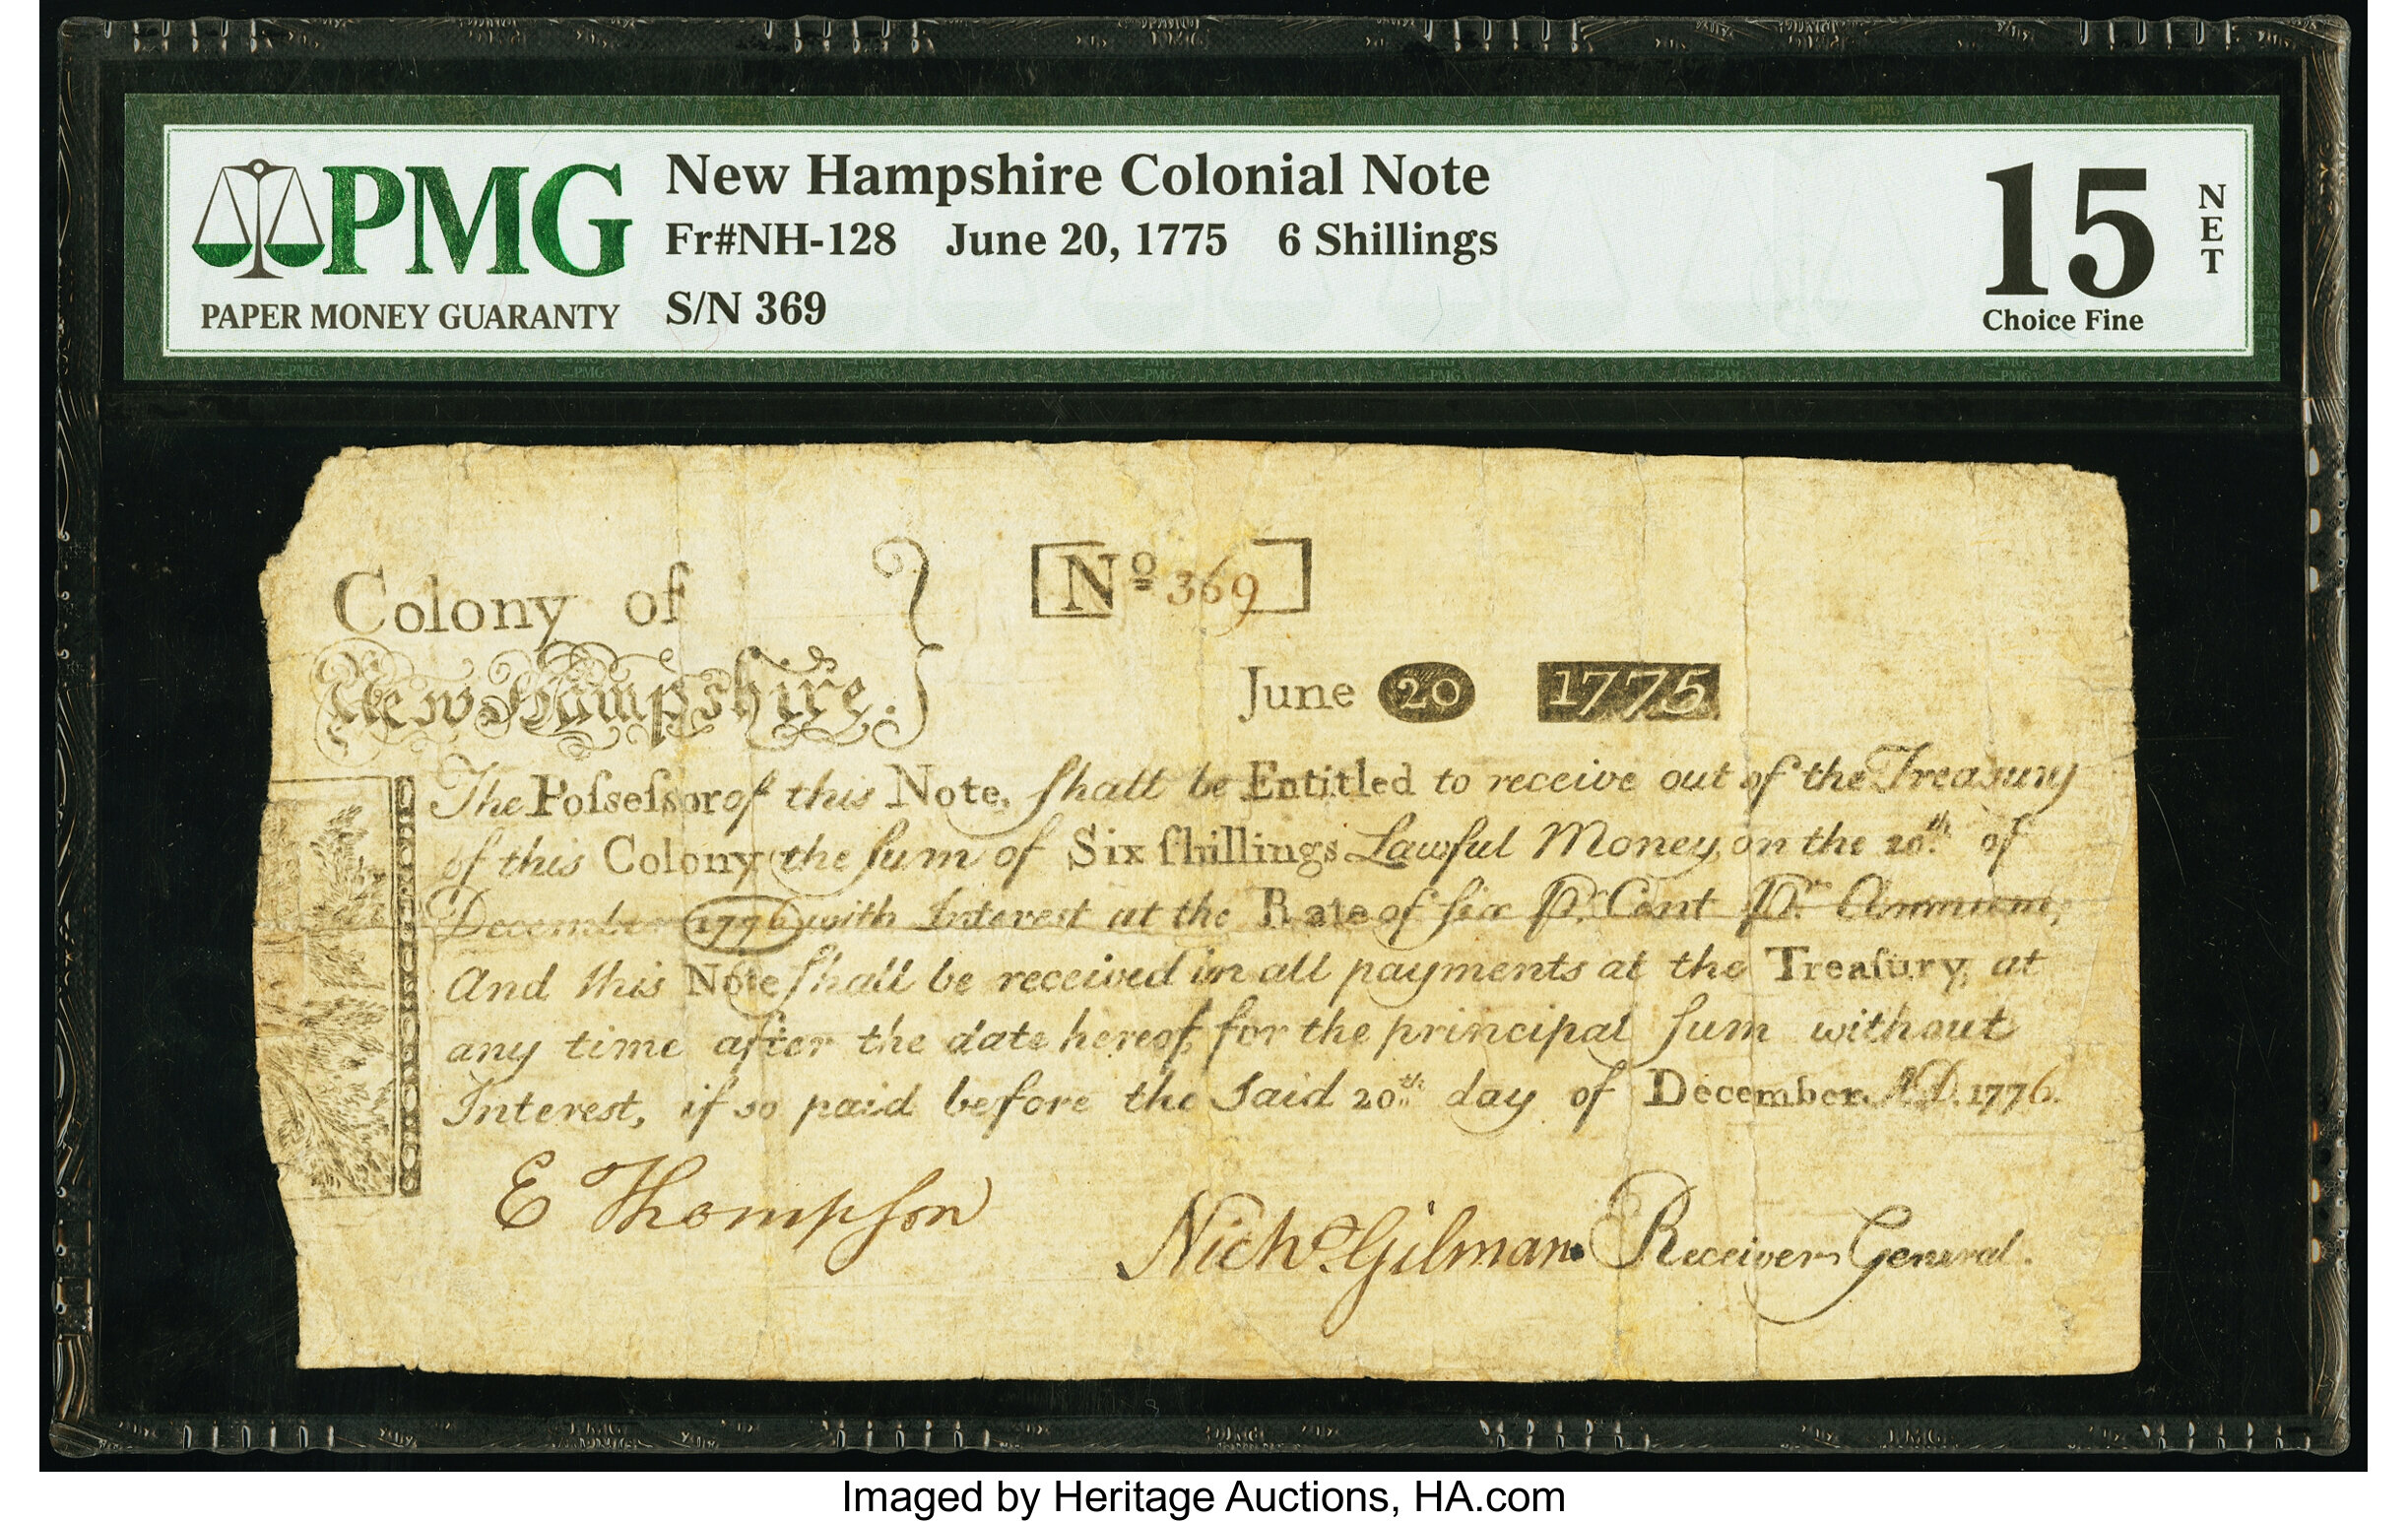 PMG
PAPER MONEY GUARANTY
New Hampshire Colonial Note
Fr#NH-128 June 20, 1775 6 Shillings
S/N 369
15
NET
Choice Fine
Colony of
New Hampshire.
Nº 369
June 20 1775
The Poſseſsor of this Note, ſhall be Entitled to receive out of the Treasury
of this Colony the ſum of Six ſhillings Lawful Money, on the 20th. of
December 1776 with Interest at the Rate of ſix Pr. Cent Pr. Annum;
And this Note ſhall be received in all payments at the Treaſury, at
any time after the date hereof, for the principal ſum without
Interest, if so paid before the Said 20th. day of December A.D. 1776.
E Thompſon
Nichs. Gilman Receiver General.
Imaged by Heritage Auctions, HA.com